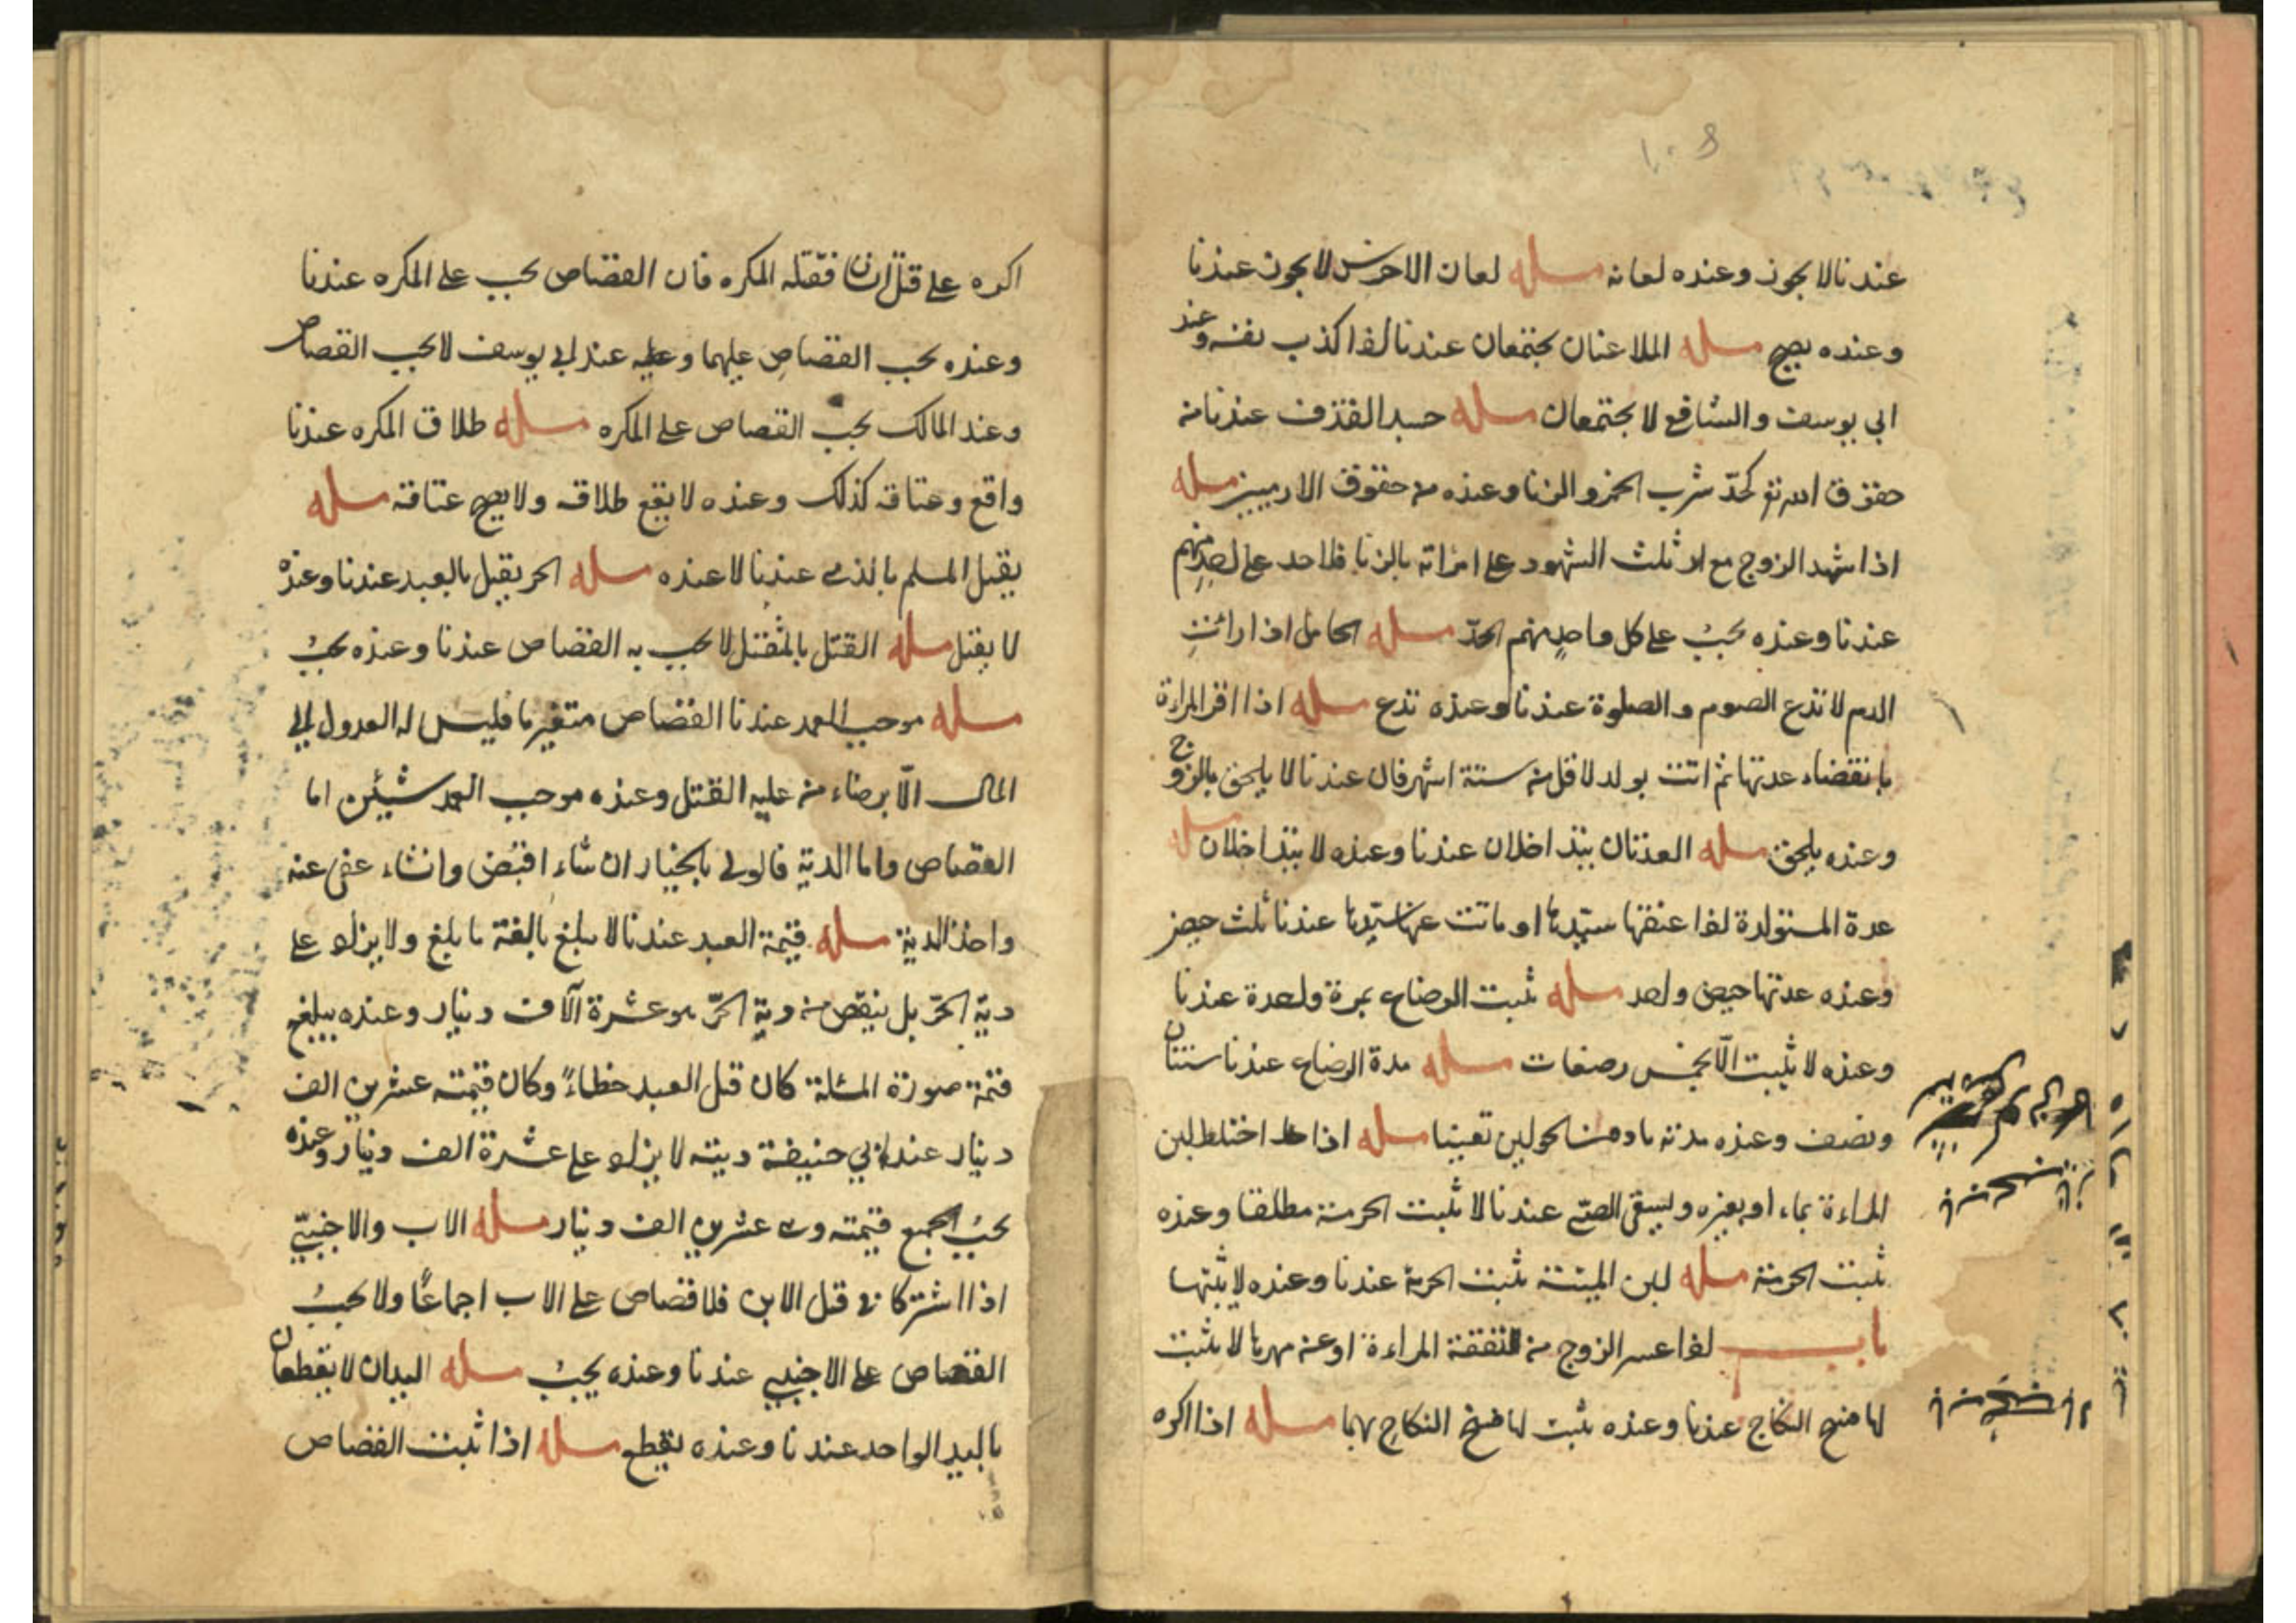 عندنا لا يجوز وعنده لعانه مسله لعان الاخرس لا يجوز عندنا
وعنده يصح مسله الملاعنان يجتمعان عندنا اذا كذب نفسه وعند
ابي يوسف والشافع لا يجتمعان مسله حد القذف عندنا من
حقوق الله تع كحدّ شرب الخمر والزنا وعنده من حقوق الادميين مسله
اذا شهد الزوج مع ثلث الشهود على امراته بالزنا فلا حد على احد منهم
عندنا وعنده يجبُ على كل واحدٍ منهم الحدّ مسله الحامل اذا رائتِ
الدم لا تدع الصوم والصلوة عندنا وعنده تدع مسله اذا اقر المراءة
بانقضاء عدتها ثم اتت بولد لاقل من ستة اشهر فان عندنا لا يلحق بالزوج
وعنده يلحق مسله العدتان يتداخلان عندنا وعنده لا يتداخلان مسله
عدة المستولدة اذا عتقها سيّدها او ماتت عنها سيّدها عندنا ثلث حيض
وعنده عدتها حيض واحد مسله ثبت الرضاع بمرة واحدة عندنا
وعنده لا يثبت الّا بخمس رضعات مسله مدة الرضاع عندنا سنتان
ونصف وعنده مدته الحولين مسله اذا اختلط لبن
المراءة بماء او بغيره وليسقى الصبّى عندنا لا ثبت الحرمة مطلقا وعنده
ثبت الحرمة مسله لبن الميتة يثبت الحرمة عندنا وعنده لا يثبتها
باب اذا عسر الزوج من النفقة المراءة او عن مهرها لا يثبت
لها فسخ النكاح عندنا وعنده يثبت لها فسخ النكاح بهما مسله اذا اكره
اكره على قتل انسان فقتله المكره فان القصاص يجب على المكره عندنا
وعنده يجب القصاص عليهما وعليه عند ابي يوسف لا يجب القصاص
وعند المالك يجب القصاص على المكره مسله طلاق المكره عندنا
واقع وعتاقه كذلك وعنده لا يقع طلاقه ولا يصح عتاقه مسله
يقتل المسلم بالذمى عندنا لا عنده مسله الحر يقتل بالعبد عندنا وعنده
لا يقتل مسله القتل بالمثقل لا يجب به القصاص عندنا وعنده يجبُ
مسله موجب العمد عندنا القصاص فليس له العدول الى
المال الّا برضاء من عليه القتل وعنده موجب العمد شيئن اما
القصاص واما الدية فالولى بالخيار ان شاء اقتص وانشاء عفى عنه
واخذ الدية مسله قيمة العبد عندنا لا يبلغ بالغة ما بلغ ولا يزاد على
ديّة الحرّ بل ينقص من دية الحرّ هو عشرة آلاف دينار وعنده يبلغ
قيمة صورة المسئلة كان قتل العبد خطاءً وكان قيمته عشرين الف
دينار عند ابي حنيفة ديته لا يزاد على عشرة الف دينار وعنده
يجبُ الجمع قيمته وهى عشرين الف دينار مسله الاب والاجنبىّ
اذا اشتركا فى قتل الابن فلا قصاص على الاب اجماعًا ولا يجبُ
القصاص على الاجنبى عندنا وعنده يجبُ مسله اليدان لا يقطعان
باليد الواحد عندنا وعنده يقطع مسله اذا ثبت القصاص